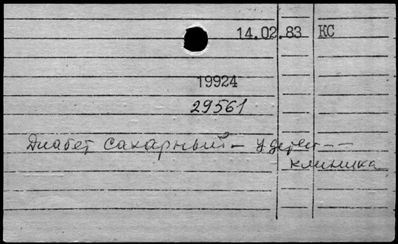 14.02.83 КС
19924
29561
Диабет сахарный - у детей --
клиника